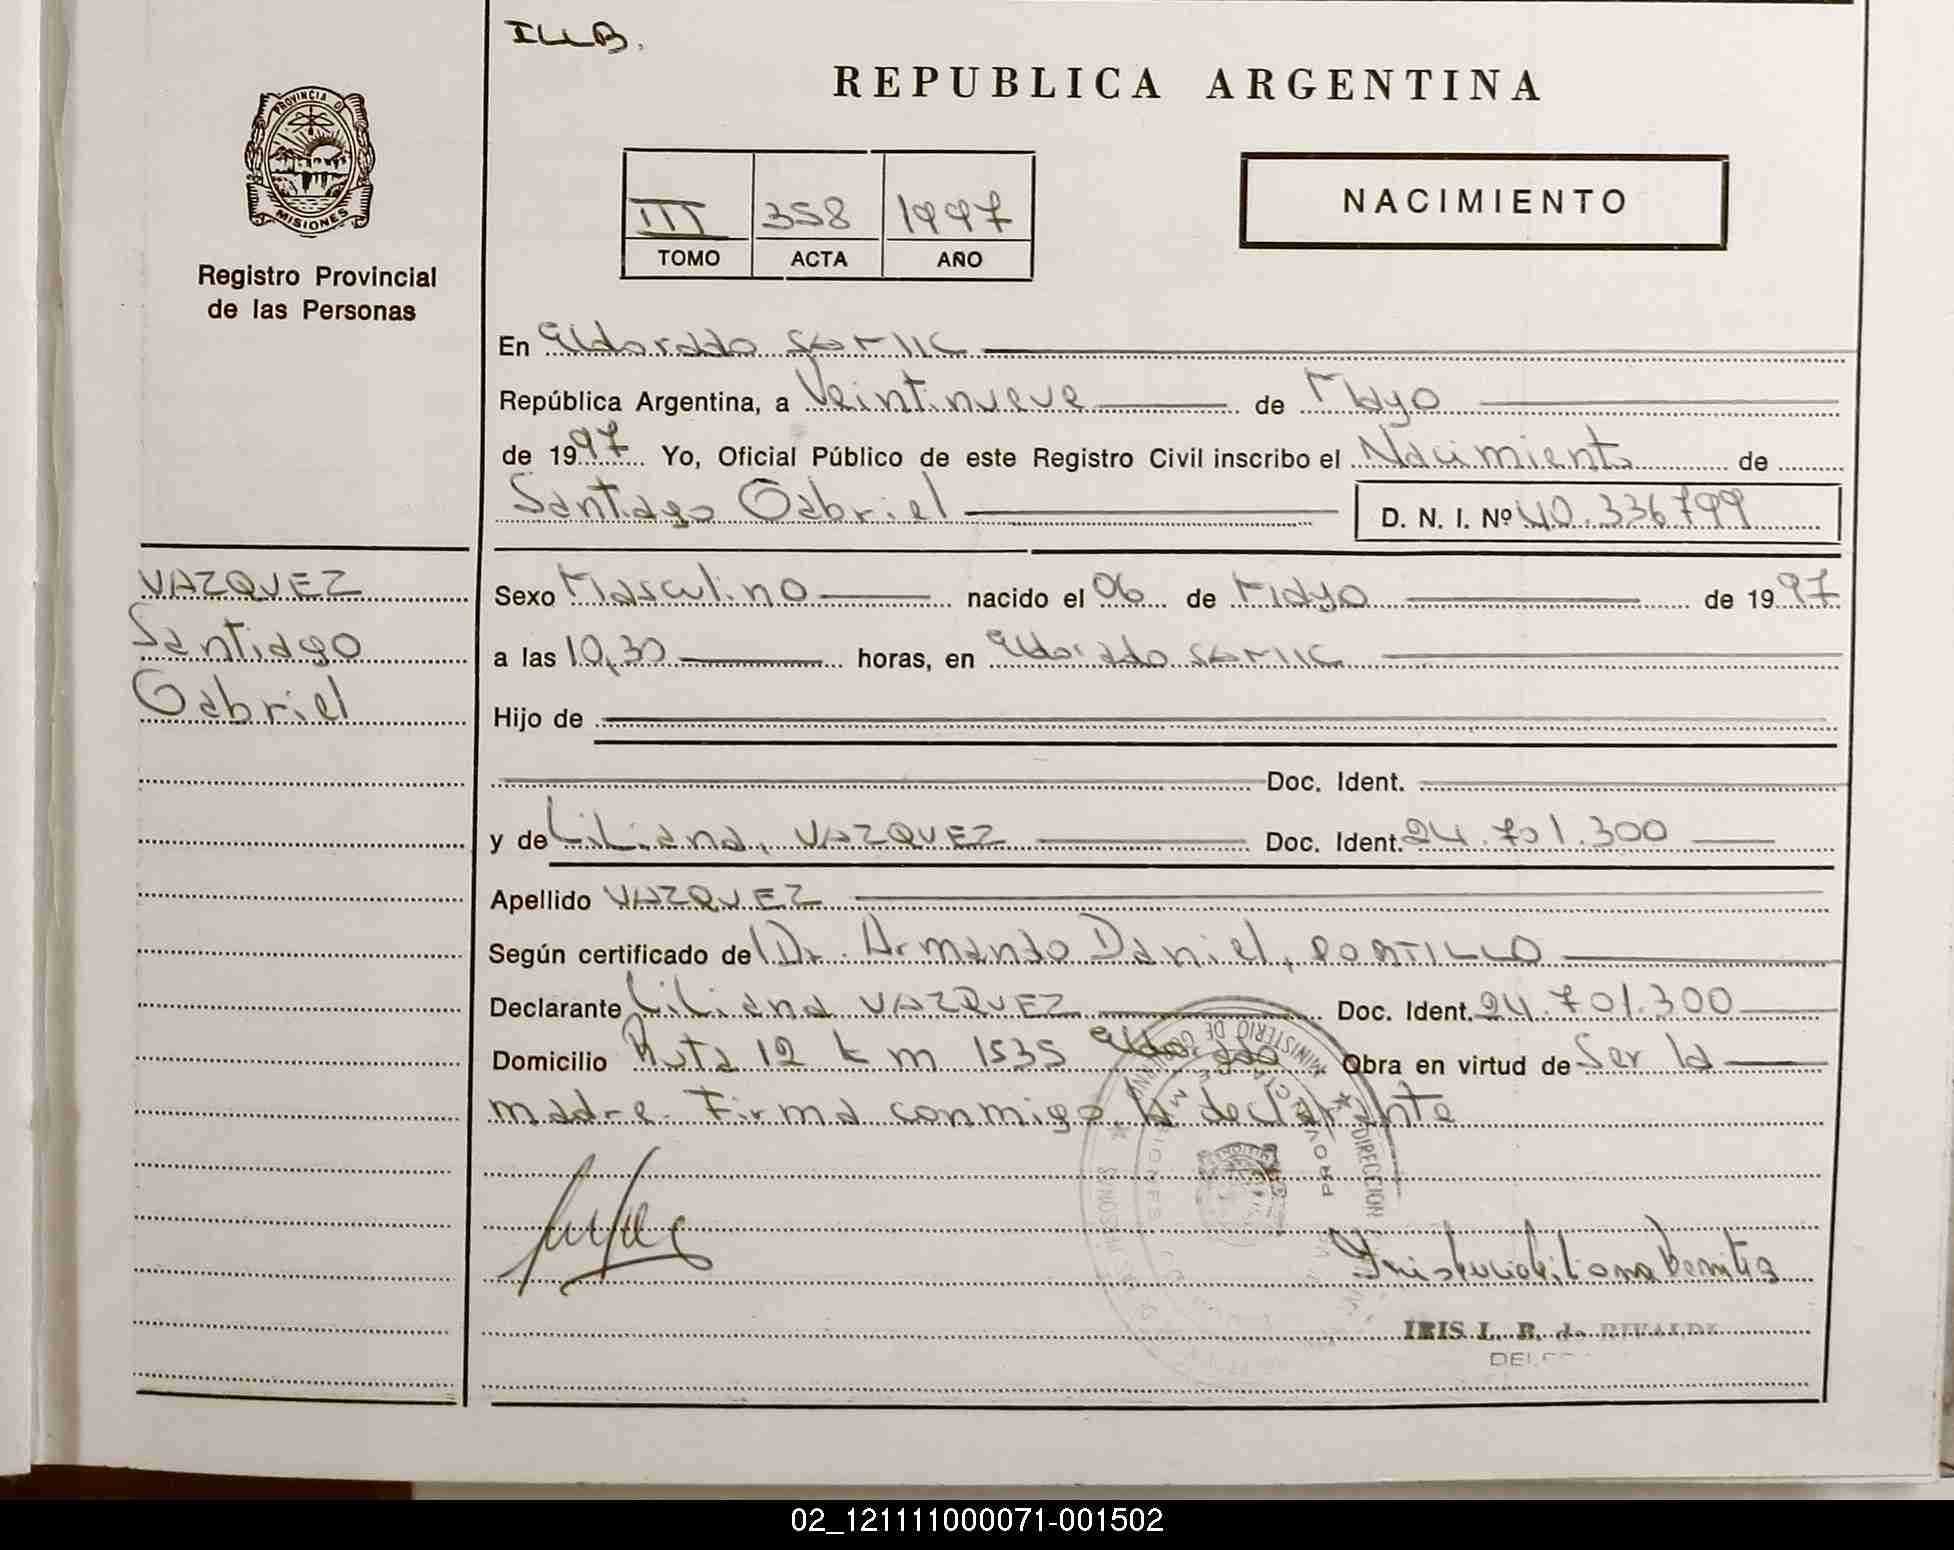 ILLB.
REPUBLICA ARGENTINA
PROVINCIA D
MISIONES
Registro Provincial
de las Personas
III 358 1997
TOMO ACTA AÑO
NACIMIENTO
En Eldorado SAMIC
República Argentina, a Veintinueve de Mayo
de 1997 Yo, Oficial Público de este Registro Civil inscribo el Nacimiento de
Santiago Gabriel D. N. I. Nº 40.336.799
VAZQUEZ
Santiago
Gabriel
Sexo Masculino nacido el 06 de Mayo de 1997
a las 10,30 horas, en Eldorado SAMIC
Hijo de
Doc. Ident.
y de Liliana, VAZQUEZ Doc. Ident. 24.701.300
Apellido VAZQUEZ
Según certificado de Dr. Armando Daniel, PORTILLO
Declarante Liliana VAZQUEZ Doc. Ident. 24.701.300
Domicilio Ruta 12 km 1535 Eldorado Obra en virtud de Ser la
madre. Firma conmigo la declarante
MINISTERIO DE GOBIERNO
DIRECCION
PROVINCIA DE MISIONES
IRIS L. B. de RIVALDI
02_121111000071-001502